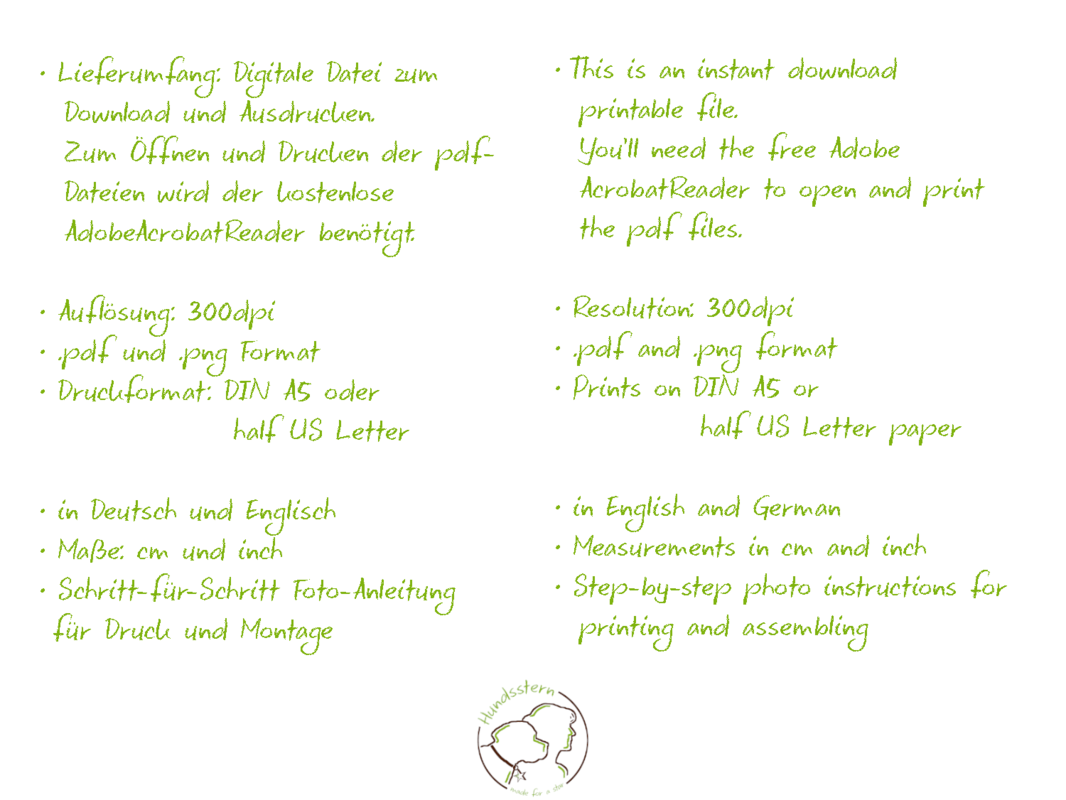 • Lieferumfang: Digitale Datei zum
Download und Ausdrucken.
Zum Öffnen und Drucken der pdf-
Dateien wird der kostenlose
AdobeAcrobatReader benötigt.
• Auflösung: 300dpi
• .pdf und .png Format
• Druckformat: DIN A5 oder
half US Letter
• in Deutsch und Englisch
• Maße: cm und inch
• Schritt-für-Schritt Foto-Anleitung
für Druck und Montage
• This is an instant download
printable file.
You'll need the free Adobe
AcrobatReader to open and print
the pdf files.
• Resolution: 300dpi
• .pdf and .png format
• Prints on DIN A5 or
half US Letter paper
• in English and German
• Measurements in cm and inch
• Step-by-step photo instructions for
printing and assembling
Hundsstern
made for a star